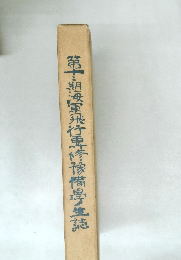 第十期海軍飛行専修豫備學生誌